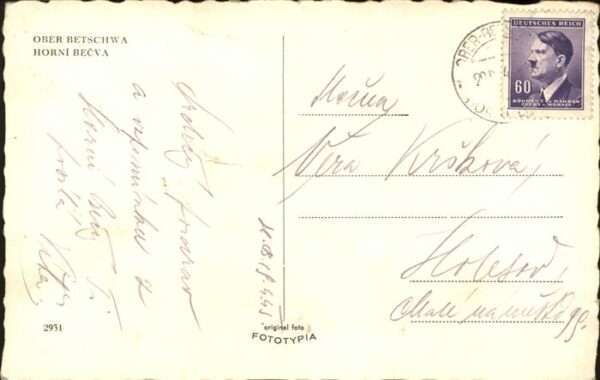 OBER BETSCHWA
HORNÍ BEČVA
Srdečný pozdrav
a vzpomínku z
Horní Bečvy Ti
posílá
2951
original foto
FOTOTYPIA
DEUTSCHES REICH
60
BÖHMEN U. MÄHREN
ČECHY A MORAVA
OBER-BE
Věra Kršková
Holešov
Malé náměstí